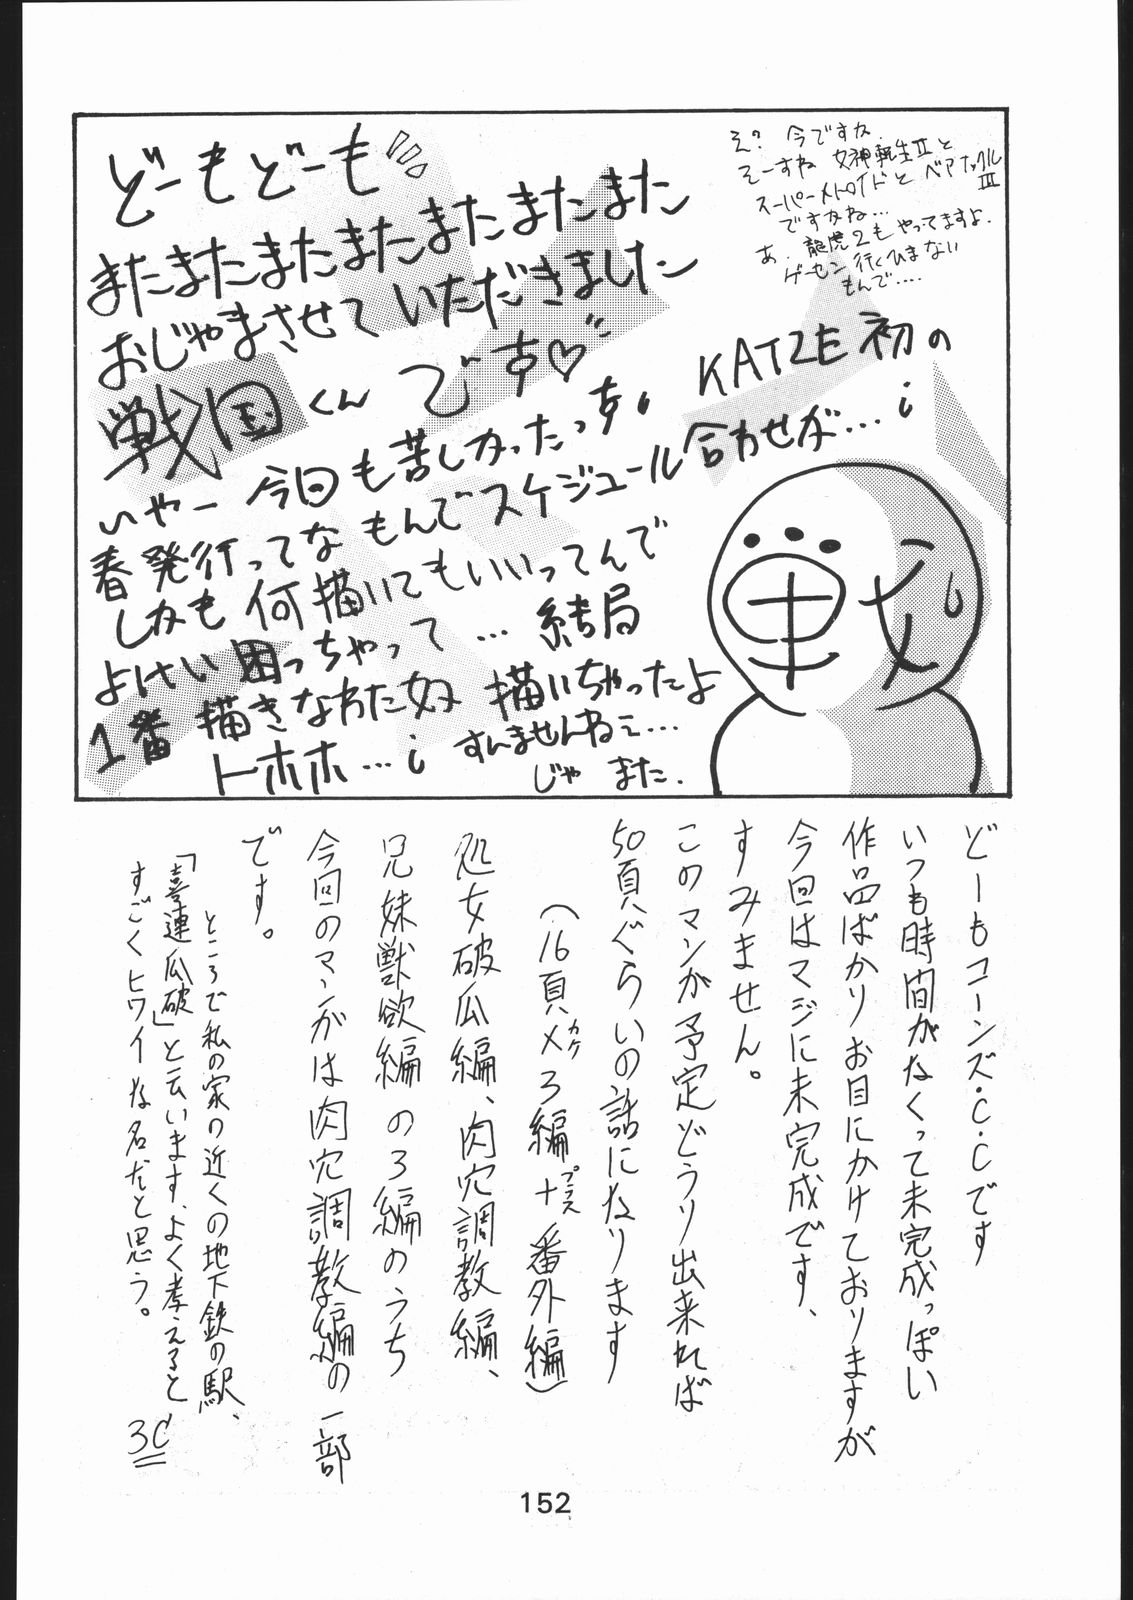 どーもどーも
またまたまたまたまたまたまた
おじゃまさせていただきました
戦国くんです♡
え？今ですか
そーすね 女神転生IIと
スーパーメトロイドとベアナックルIII
ですかね…
あ、龍虎2もやってますよ.
ゲーセン行くひまない
もんで‥‥
いやー今回も苦しかったっす。KATZE初の
春発行ってなもんでスケジュール合わせが…；
しかも何描いてもいいってんで
よけい困っちゃって…結局
1番描きなれた奴描いちゃったよ
トホホ…； すんませんねぇ…
じゃまた.
どーもコーンズ・C・Cです
いつも時間がなくって未完成っぽい
作品ばかりお目にかけておりますが
今回はマジに未完成です、
すみません。
このマンガ予定どうり出来れば
50頁ぐらいの話になります
（16頁×カケ3編＋プラス番外編）
処女破瓜編、肉穴調教編、
兄妹獣欲編の3編のうち
今回のマンガは肉穴調教編の一部
です。
ところで私の家の近くの地下鉄の駅、
「喜連瓜破」と云います、よく考えると
すごくヒワイな名だと思う。
3C
152